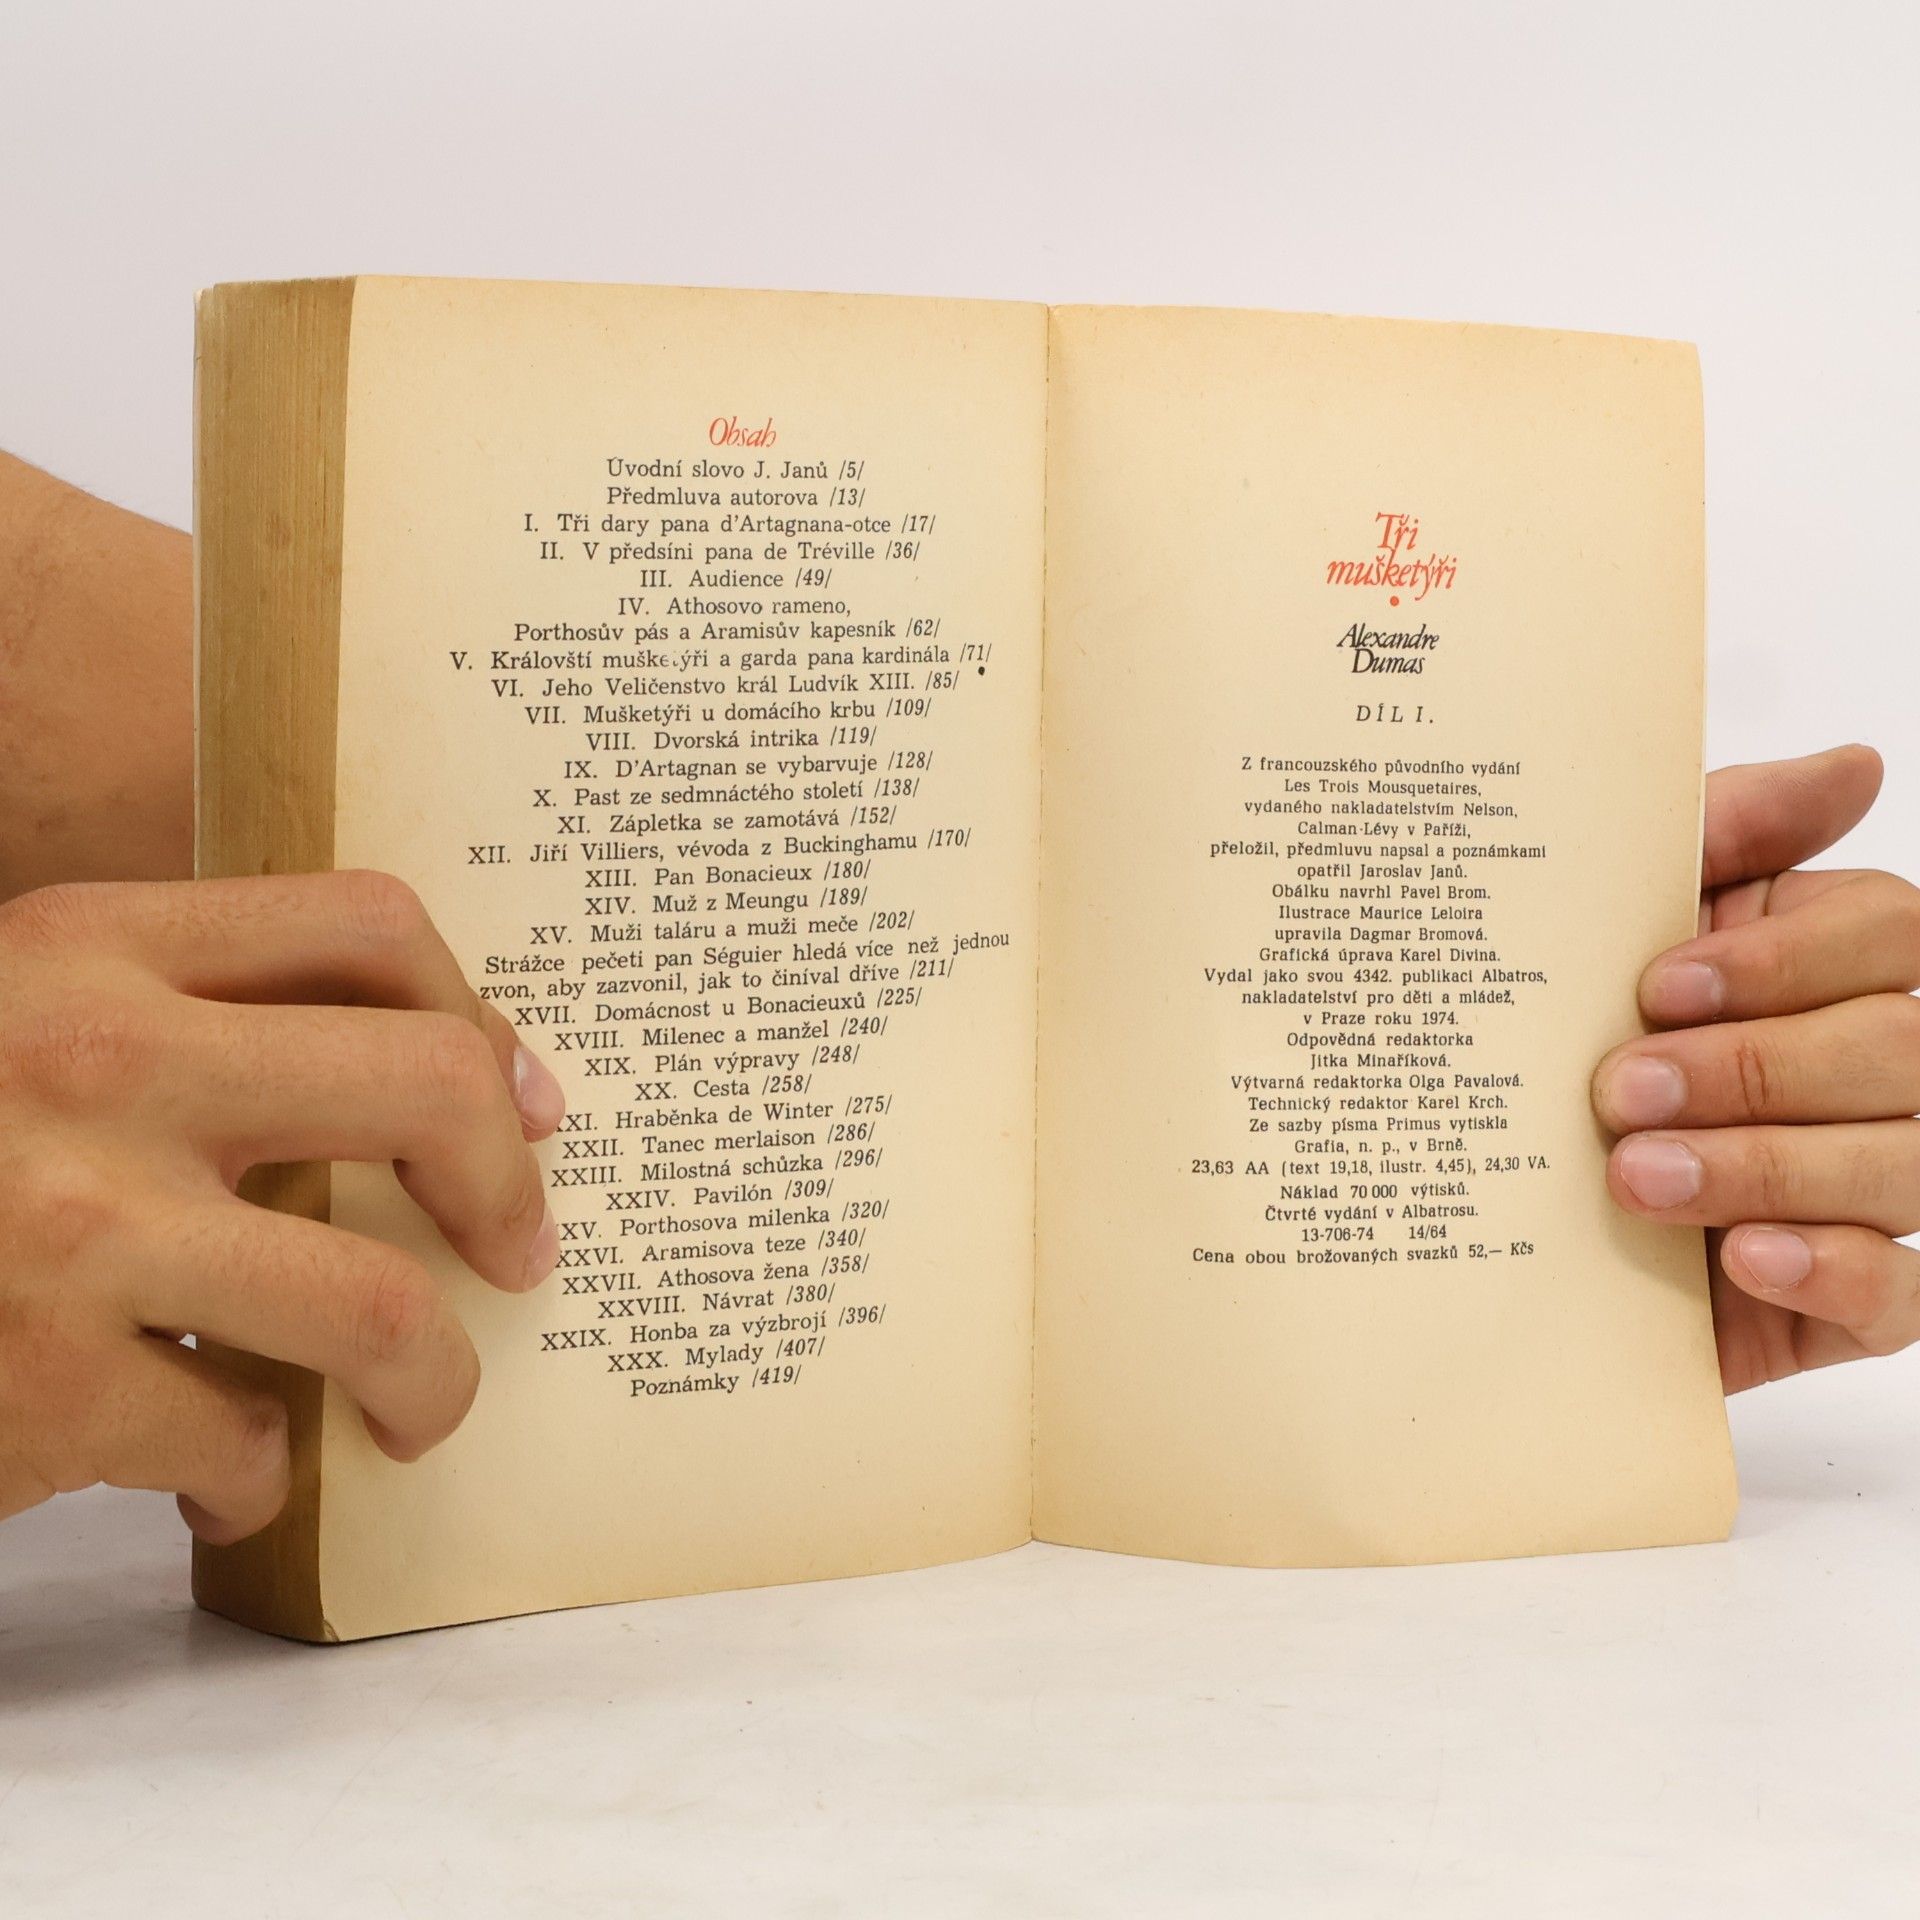 Obsah
Úvodní slovo J. Janů /5/
Předmluva autorova /13/
I. Tři dary pana d'Artagnana-otce /17/
II. V předsíni pana de Tréville /36/
III. Audience /49/
IV. Athosovo rameno,
Porthosův pás a Aramisův kapesník /62/
V. Královští mušketýři a garda pana kardinála /71/
VI. Jeho Veličenstvo král Ludvík XIII. /85/
VII. Mušketýři u domácího krbu /109/
VIII. Dvorská intrika /119/
IX. D'Artagnan se vybarvuje /128/
X. Past ze sedmnáctého století /138/
XI. Zápletka se zamotává /152/
XII. Jiří Villiers, vévoda z Buckinghamu /170/
XIII. Pan Bonacieux /180/
XIV. Muž z Meungu /189/
XV. Muži taláru a muži meče /202/
Strážce pečeti pan Séguier hledá více než jednou
zvon, aby zazvonil, jak to činíval dříve /211/
XVII. Domácnost u Bonacieuxů /225/
XVIII. Milenec a manžel /240/
XIX. Plán výpravy /248/
XX. Cesta /258/
XXI. Hraběnka de Winter /275/
XXII. Tanec merlaison /286/
XXIII. Milostná schůzka /296/
XXIV. Pavilón /309/
XXV. Porthosova milenka /320/
XXVI. Aramisova teze /340/
XXVII. Athosova žena /358/
XXVIII. Návrat /380/
XXIX. Honba za výzbrojí /396/
XXX. Mylady /407/
Poznámky /419/
Tři
mušketýři
Alexandre
Dumas
DÍL I.
Z francouzského původního vydání
Les Trois Mousquetaires,
vydaného nakladatelstvím Nelson,
Calman-Lévy v Paříži,
přeložil, předmluvu napsal a poznámkami
opatřil Jaroslav Janů.
Obálku navrhl Pavel Brom.
Ilustrace Maurice Leloira
upravila Dagmar Bromová.
Grafická úprava Karel Divina.
Vydal jako svou 4342. publikaci Albatros,
nakladatelství pro děti a mládež,
v Praze roku 1974.
Odpovědná redaktorka
Jitka Minaříková.
Výtvarná redaktorka Olga Pavalová.
Technický redaktor Karel Krch.
Ze sazby písma Primus vytiskla
Grafia, n. p., v Brně.
23,63 AA (text 19,18, ilustr. 4,45), 24,30 VA.
Náklad 70 000 výtisků.
Čtvrté vydání v Albatrosu.
13-706-74 14/64
Cena obou brožovaných svazků 52,— Kčs